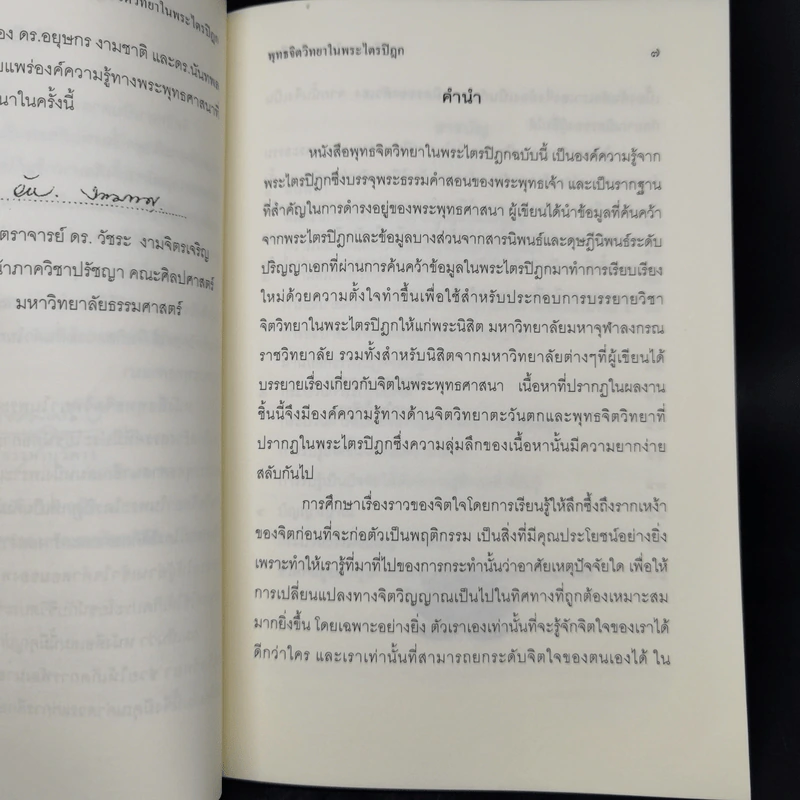 ตวิทยาในพระไตรปิฎก
ของ ดร.อยุษกร งามชาติ และดร.นันทพล
ยแพร่องค์ความรู้ทางพระพุทธศาสนาที่
นาในครั้งนี้
ตราจารย์ ดร. วัชระ งามจิตรเจริญ
น้าภาควิชาปรัชญา คณะศิลปศาสตร์
มหาวิทยาลัยธรรมศาสตร์
พุทธจิตวิทยาในพระไตรปิฎก ๗
คำนำ
หนังสือพุทธจิตวิทยาในพระไตรปิฎกฉบับนี้ เป็นองค์ความรู้จาก
พระไตรปิฎกซึ่งบรรจุพระธรรมคำสอนของพระพุทธเจ้า และเป็นรากฐาน
ที่สำคัญในการดำรงอยู่ของพระพุทธศาสนา ผู้เขียนได้นำข้อมูลที่ค้นคว้า
จากพระไตรปิฎกและข้อมูลบางส่วนจากสารนิพนธ์และดุษฎีนิพนธ์ระดับ
ปริญญาเอกที่ผ่านการค้นคว้าข้อมูลในพระไตรปิฎกมาทำการเรียบเรียง
ใหม่ด้วยความตั้งใจทำขึ้นเพื่อใช้สำหรับประกอบการบรรยายวิชา
จิตวิทยาในพระไตรปิฎกให้แก่พระนิสิต มหาวิทยาลัยมหาจุฬาลงกรณ
ราชวิทยาลัย รวมทั้งสำหรับนิสิตจากมหาวิทยาลัยต่างๆที่ผู้เขียนได้
บรรยายเรื่องเกี่ยวกับจิตในพระพุทธศาสนา เนื้อหาที่ปรากฏในผลงาน
ชิ้นนี้จึงมีองค์ความรู้ทางด้านจิตวิทยาตะวันตกและพุทธจิตวิทยาที่
ปรากฏในพระไตรปิฎกซึ่งความลุ่มลึกของเนื้อหานั้นมีความยากง่าย
สลับกันไป
การศึกษาเรื่องราวของจิตใจโดยการเรียนรู้ให้ลึกซึ้งถึงรากเหง้า
ของจิตก่อนที่จะก่อตัวเป็นพฤติกรรม เป็นสิ่งที่มีคุณประโยชน์อย่างยิ่ง
เพราะทำให้เรารู้ที่มาที่ไปของการกระทำนั้นว่าอาศัยเหตุปัจจัยใด เพื่อให้
การเปลี่ยนแปลงทางจิตวิญญาณเป็นไปในทิศทางที่ถูกต้องเหมาะสม
มากยิ่งขึ้น โดยเฉพาะอย่างยิ่ง ตัวเราเองเท่านั้นที่จะรู้จักจิตใจของเราได้
ดีกว่าใคร และเราเท่านั้นที่สามารถยกระดับจิตใจของตนเองได้ ใน